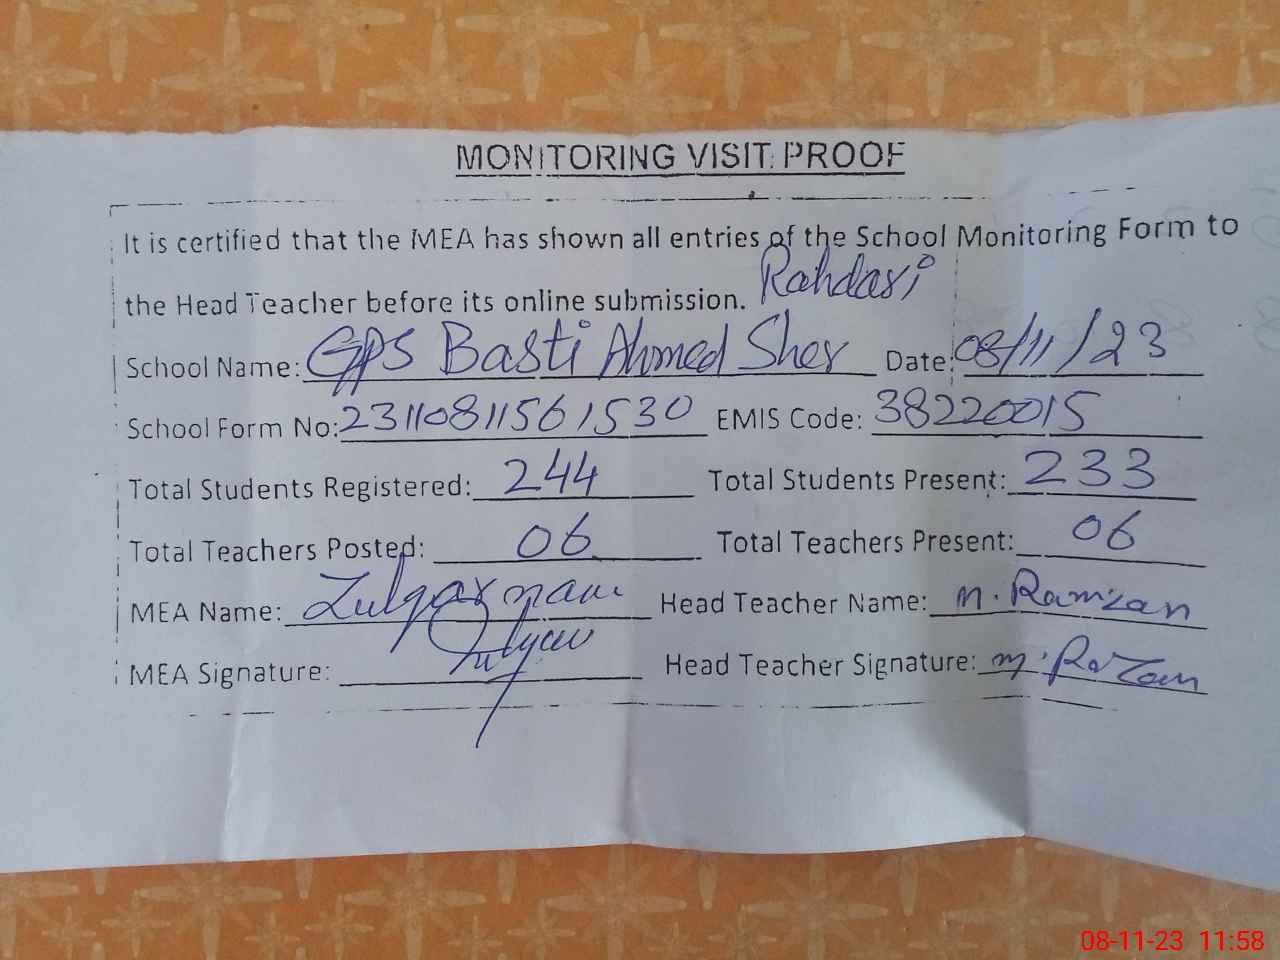 MONITORING VISIT PROOF
It is certified that the MEA has shown all entries of the School Monitoring Form to
the Head Teacher before its online submission. Rahdari
School Name: GPS Basti Ahmed Sher Date: 08/11/23
School Form No: 23110811561530 EMIS Code: 38220015
Total Students Registered: 244 Total Students Present: 233
Total Teachers Posted: 06 Total Teachers Present: 06
MEA Name: Head Teacher Name: M. Ramzan
MEA Signature: Head Teacher Signature:
08-11-23 11:58